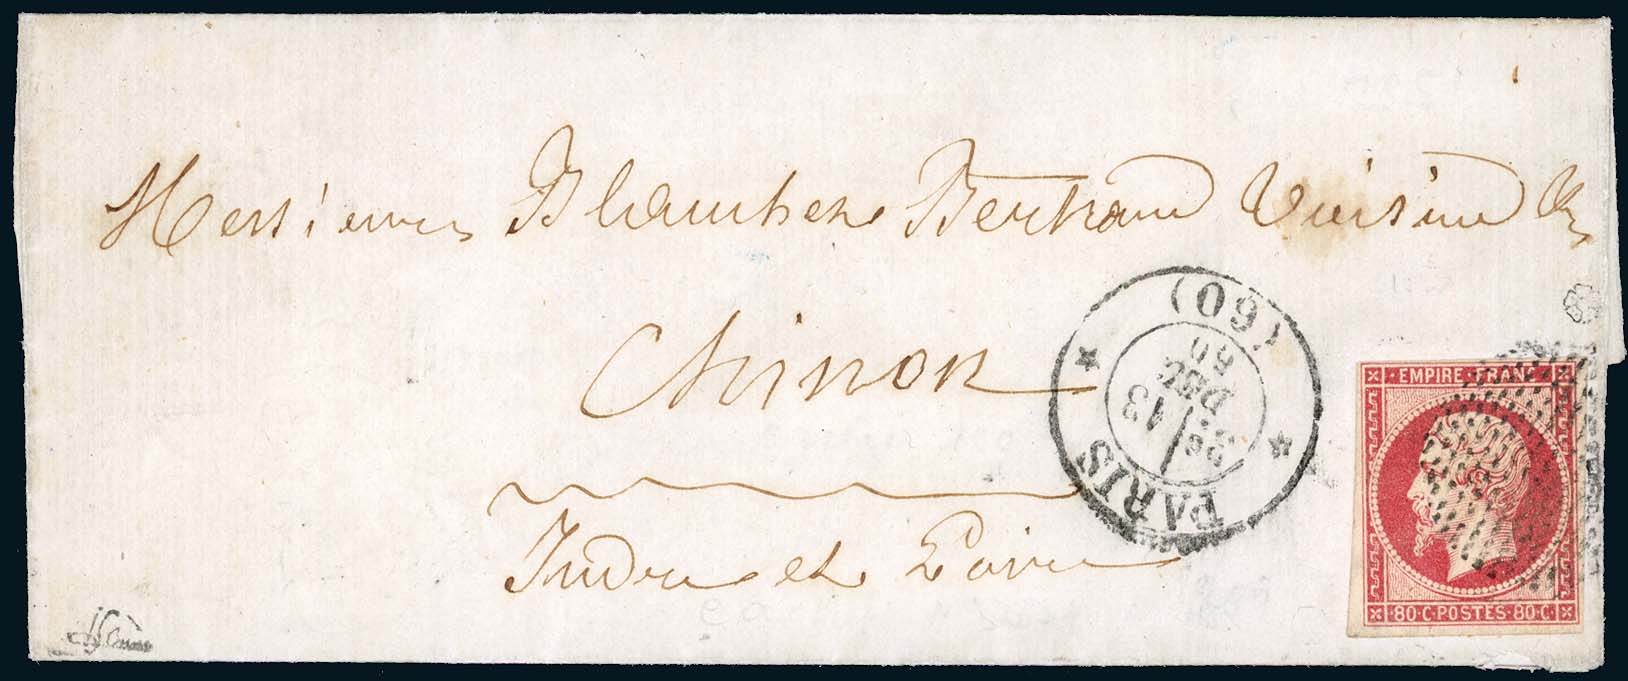 Messieurs Blancher Bertrand
Chinon
Indre et Loire
PARIS
(60)
13
DEC.
60
EMPIRE FRANC
80·C·POSTES·80·C·